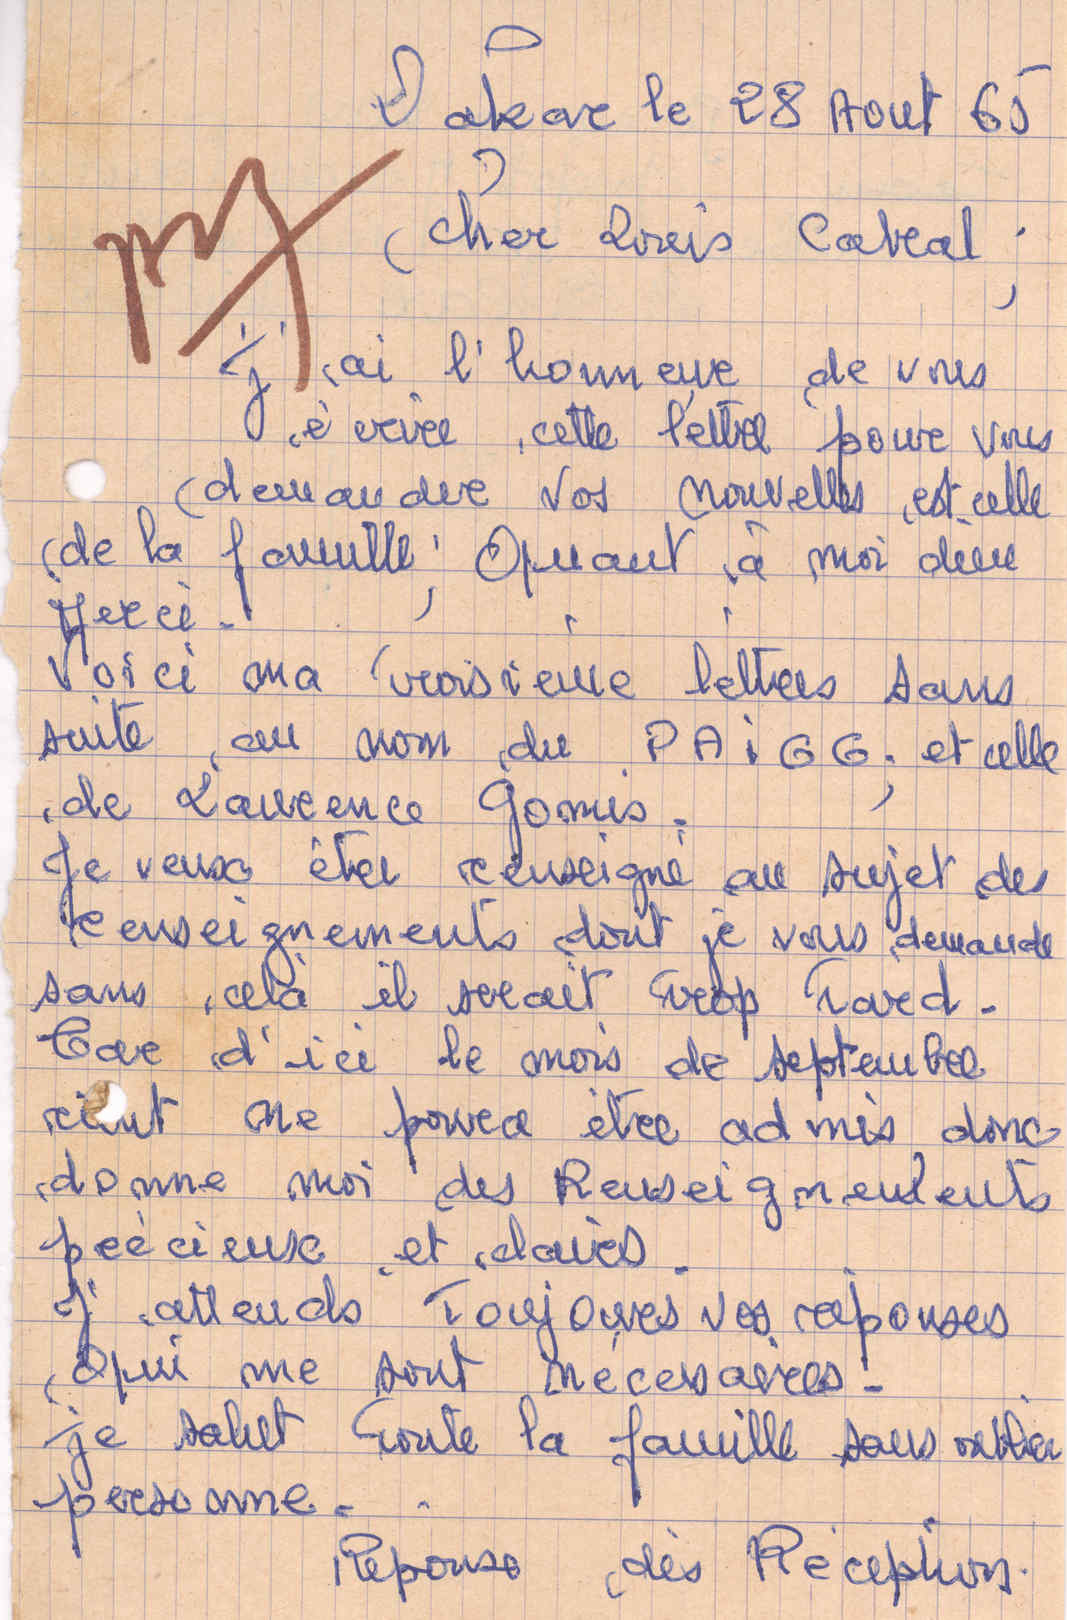 Dakar le 28 Aout 65
Cher Louis Cabral ;
J'ai l'honneur de vous
écrire cette lettre pour vous
demander vos nouvelles est celle
de la famille ; Quant à moi dieu
Merci.
Voici ma troisieme lettres sans
suite au nom du PAIGG ; et celle
de Laurence Gomis.
Je veux être renseigné au sujet des
renseignements dont je vous demande
sans cela il serait trop tard.
Car d'ici le mois de septembre
ne pourra être admis donc
donne moi des Renseignements
précieux et claires.
J'attends Toujours vos reponses
Qui me sont necessaires.
je salut toute la famille sans oublier
personne.
Reponse dès Réception.